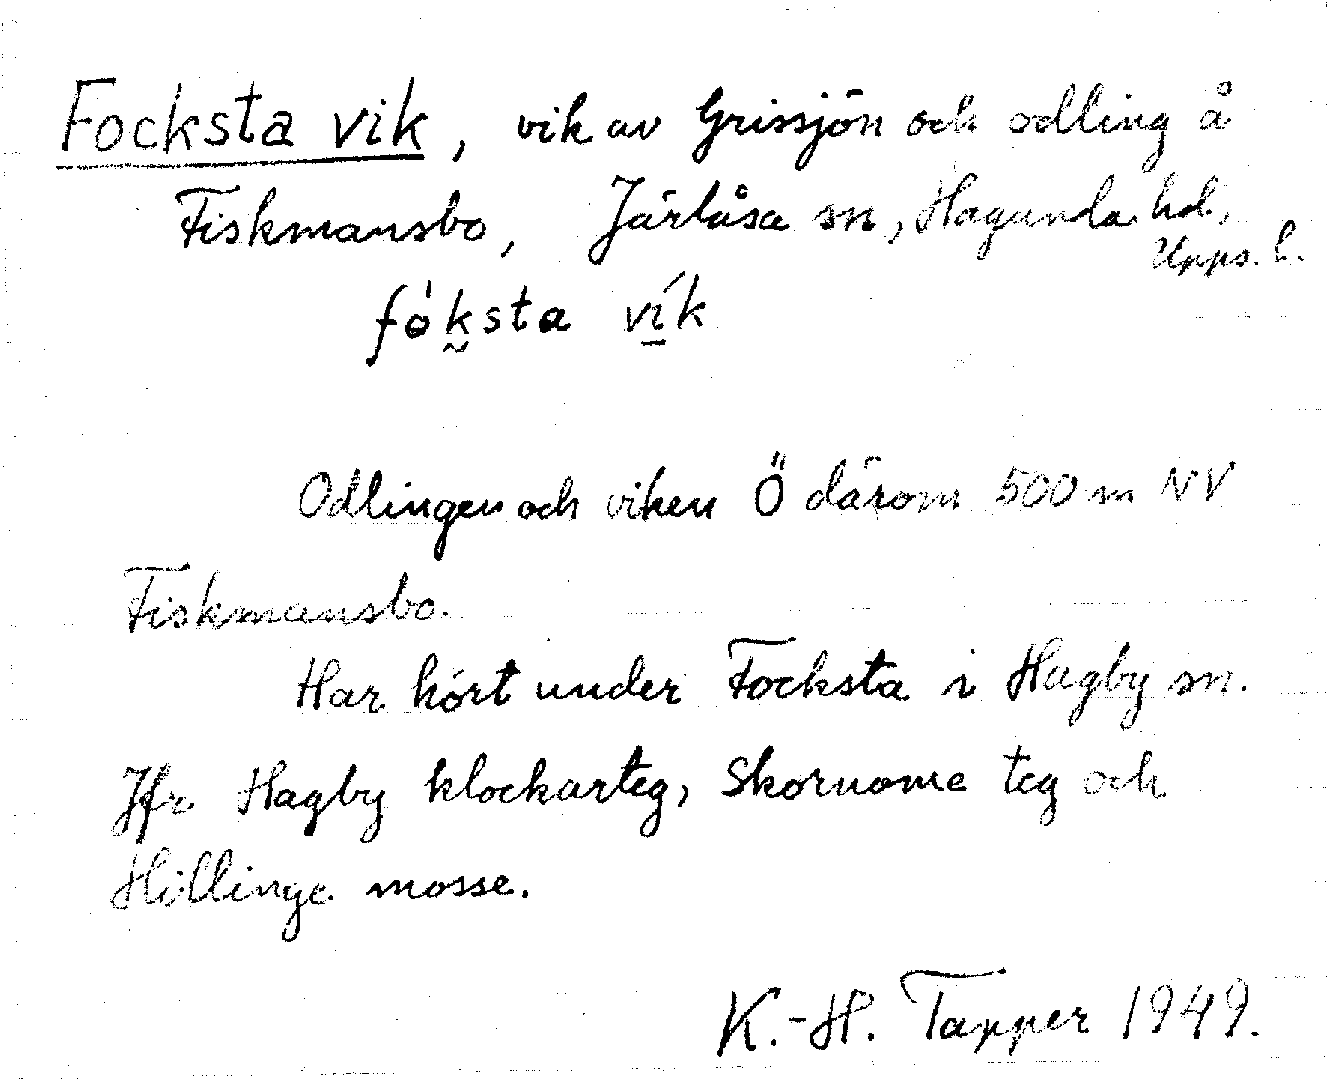 Focksta vik, vik av Grissjön och odling å
Fiskmansbo, Järlåsa sn, Hagunda hd,
Upps. l.
fòksta vík
Odlingen och viken Ö därom 500 m NV
Fiskmansbo.
Har hört under Focksta i Hagby sn.
Jfr Hagby klockarteg, Skornome teg och
Hällinge mosse.
K.-H. Tapper 1949.